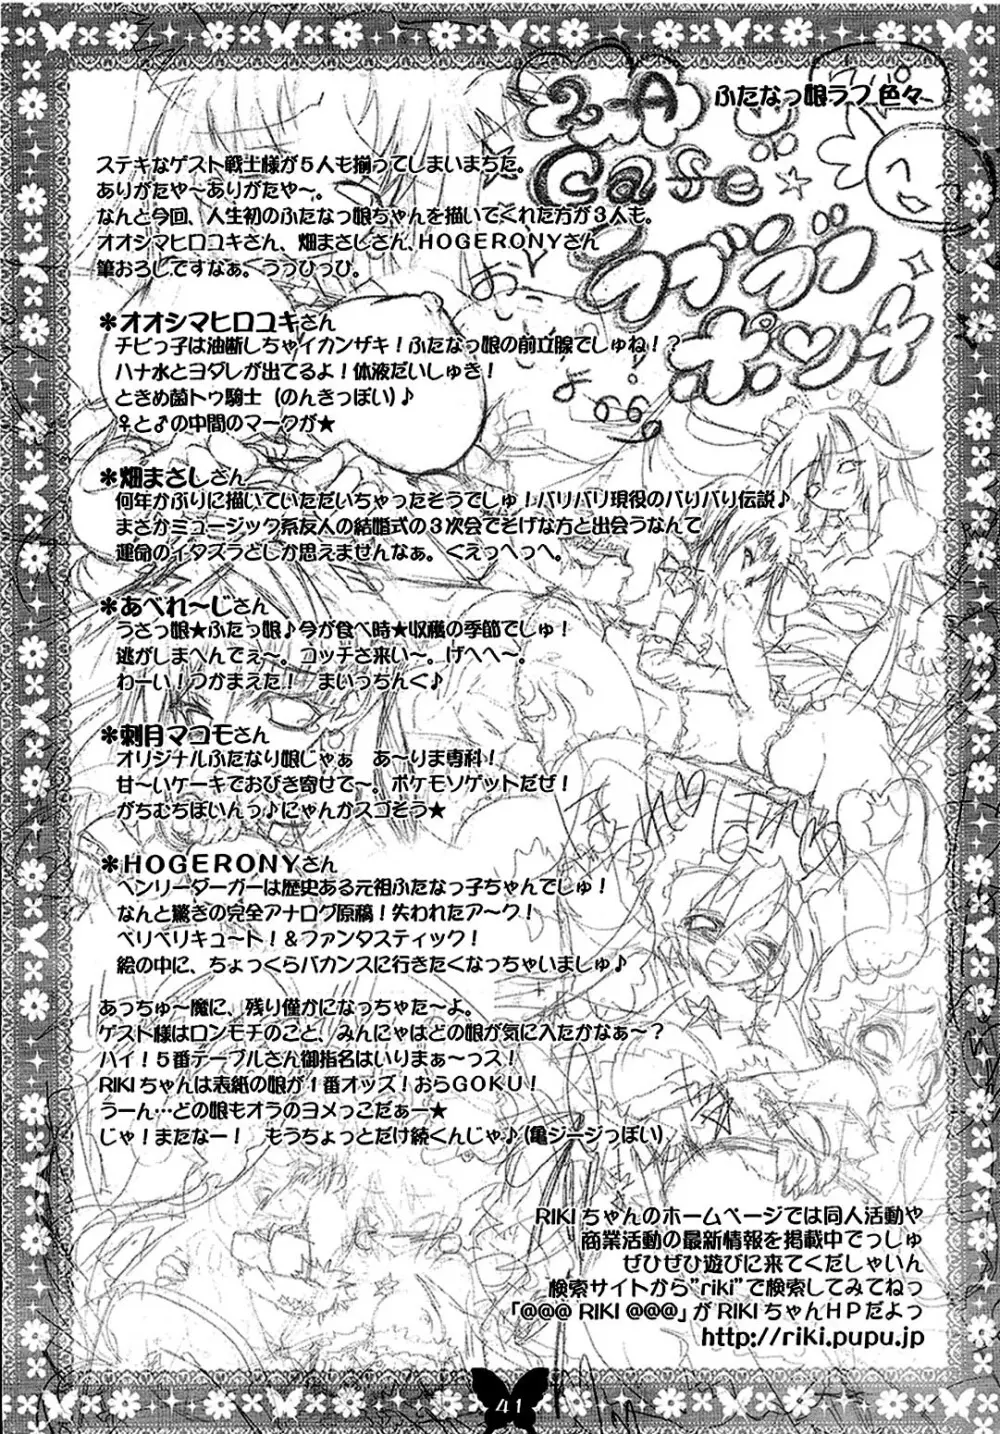 ふたなっ娘ラブ色々
2-A
Cafe
ラブラブ
ポッケ
ステキなゲスト戦士様が５人も揃ってしまいまちた。
ありがたや～ありがたや～。
なんと今回、人生初のふたなっ娘ちゃんを描いてくれた方が３人も。
オオシマヒロユキさん、畑まさしさん、ＨＯＧＥＲＯＮＹさん
筆おろしですなぁ。うっひっひ。
＊オオシマヒロユキさん
チビっ子は油断しちゃイカンザキ！ふたなっ娘の前立腺でしゅね！？
ハナ水とヨダレが出てるよ！体液だいしゅき！
ときめ菌トゥ騎士（のんきっぽい）♪
♀と♂の中間のマークが★
＊畑まさしさん
何年かぶりに描いていただいちゃったそうでしゅ！バリバリ現役のバリバリ伝説♪
まさかミュージック系友人の結婚式の３次会でそげな方と出会うなんて
運命のイタズラとしか思えませんなぁ。くえっへっへ。
＊あべれ～じさん
うさっ娘★ふたっ娘♪今が食べ時★収穫の季節でしゅ！
逃がしまへんでぇ～。コッチさ来い～。げへへ～。
わーい！つかまえた！　まいうちんぐ♪
＊刺月マコモさん
オリジナルふたなり娘じゃぁ　あ～りま専科！
甘～いケーキでおびき寄せて～。ポケモソゲットだぜ！
がちむちぼいんっ♪にゃんかスゴそう★
＊ＨＯＧＥＲＯＮＹさん
ヘンリーダーガーは歴史ある元祖ふたなっ子ちゃんでしゅ！
なんと驚きの完全アナログ原稿！失われたアーク！
ベリベリキュ～ト！＆ファンタスティック！
絵の中に、ちょっくらバカンスに行きたくなっちゃいましゅ♪
あっちゅ～魔に、残り僅かになっちゃた～よ。
ゲスト様はロンモチのこと、みんにゃはどの娘が気に入たかなぁ～？
ハイ！５番テーブルさん御指名はいりまぁ～っス！
RIKIちゃんは表紙の娘が１番オッズ！おらＧＯＫＵ！
うーん…どの娘もオラのヨメっこだぁー★
じゃ！またなー！　もうちょっとだけ続くんじゃ♪（亀ジージっぽい）
RIKIちゃんのホームページでは同人活動や
商業活動の最新情報を掲載中でっしゅ
ぜひぜひ遊びに来てくだしゃいん
検索サイトから"riki"で検索してみてねっ
「@@@ RIKI @@@」がRIKIちゃんＨＰだよっ
http://riki.pupu.jp
41